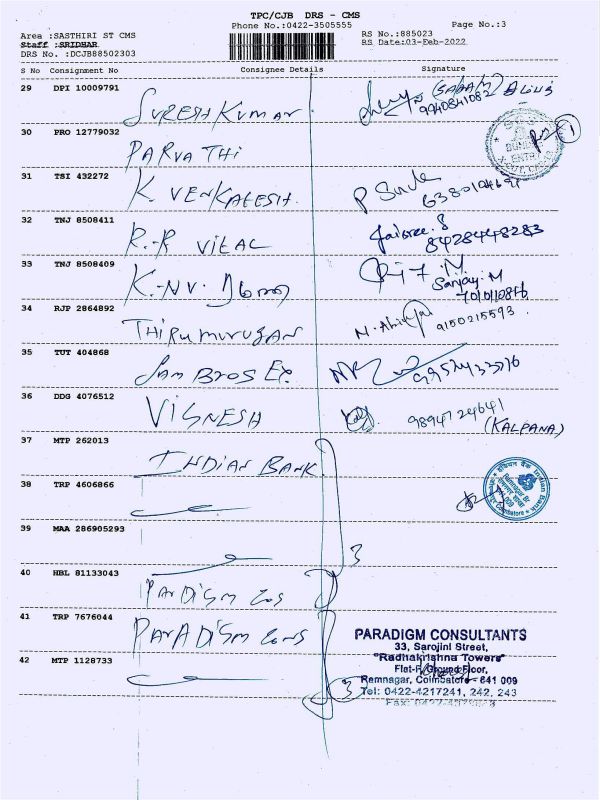 TPC/CJB DRS - CMS
Phone No.:0422-3505555
Page No.:3
Area :SASTHIRI ST CMS
RS No.:885023
Staff :SRIDHAR
RS Date:03-Feb-2022
DRS No. :DCJB88502303
S No Consignment No Consignee Details Signature
29 DPI 10009791
SURESH KUMAR
9940841082
30 PRO 12779032
PARVATHI
1
31 TSI 432272
K. VENKATESH.
32 TNJ 8508411
R.-R VILAL
Jaisree. S
8428448283
33 TNJ 8508409
K.-NV.
Sanjay. M
34 RJP 2864892
THIRUMURUGAN
9150215593
35 TUT 404868
SAM BROS EX.
36 DDG 4076512
VIGNESH
9894724641
(KALPANA)
37 MTP 262013
INDIAN BANK
38 TRP 4606866
39 MAA 286905293
3
40 HBL 81133043
PARDIGM CONS
41 TRP 7676044
PARADIGM CONS
PARADIGM CONSULTANTS
33, Sarojini Street,
"Radhakrishna Towers"
Flat-F, Ground Floor,
42 MTP 1128733
Ramnagar, Coimbatore - 641 009
3
Tel: 0422-4217241, 242, 243